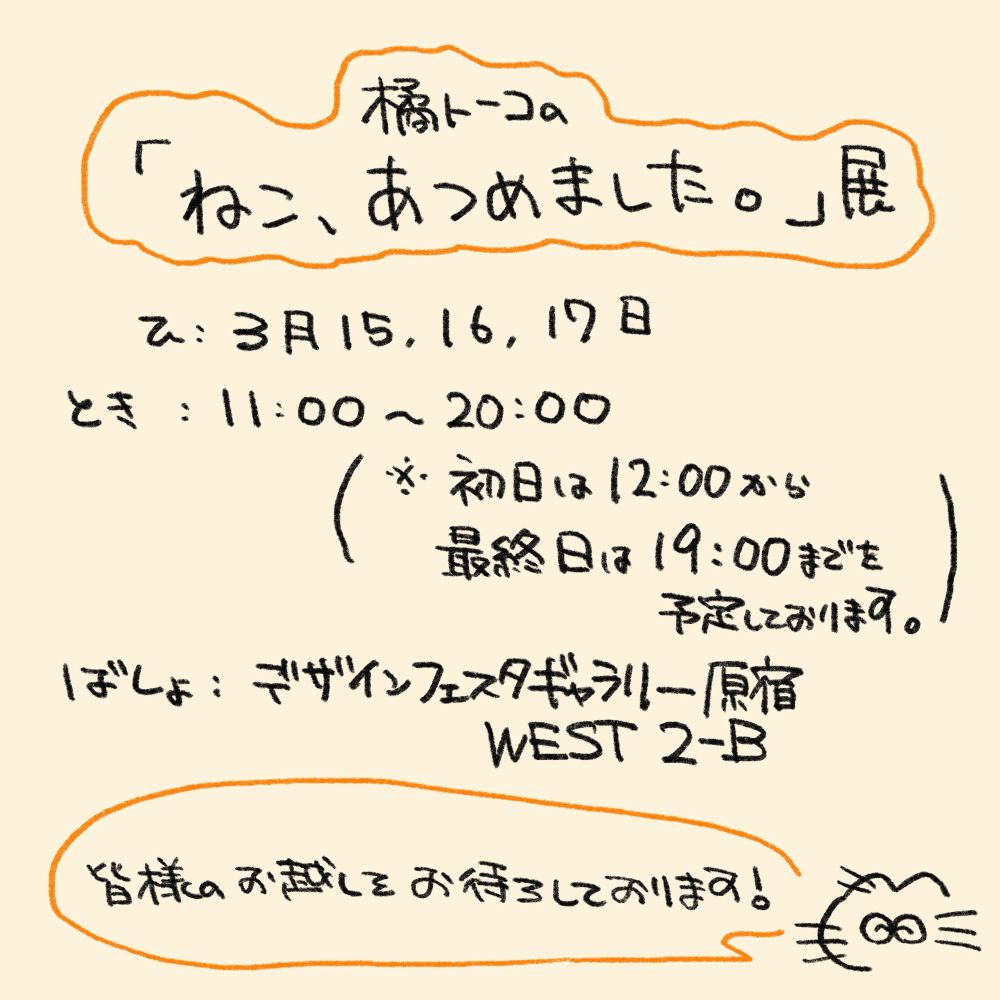 橘トーコの
「ねこ、あつめました。」展
ひ：3月15，16，17日
とき：11：00〜20：00
（※初日は12：00から
最終日は19：00までを
予定しております。）
ばしょ：デザインフェスタギャラリー原宿
WEST 2-B
皆様のお越しをお待ちしております！